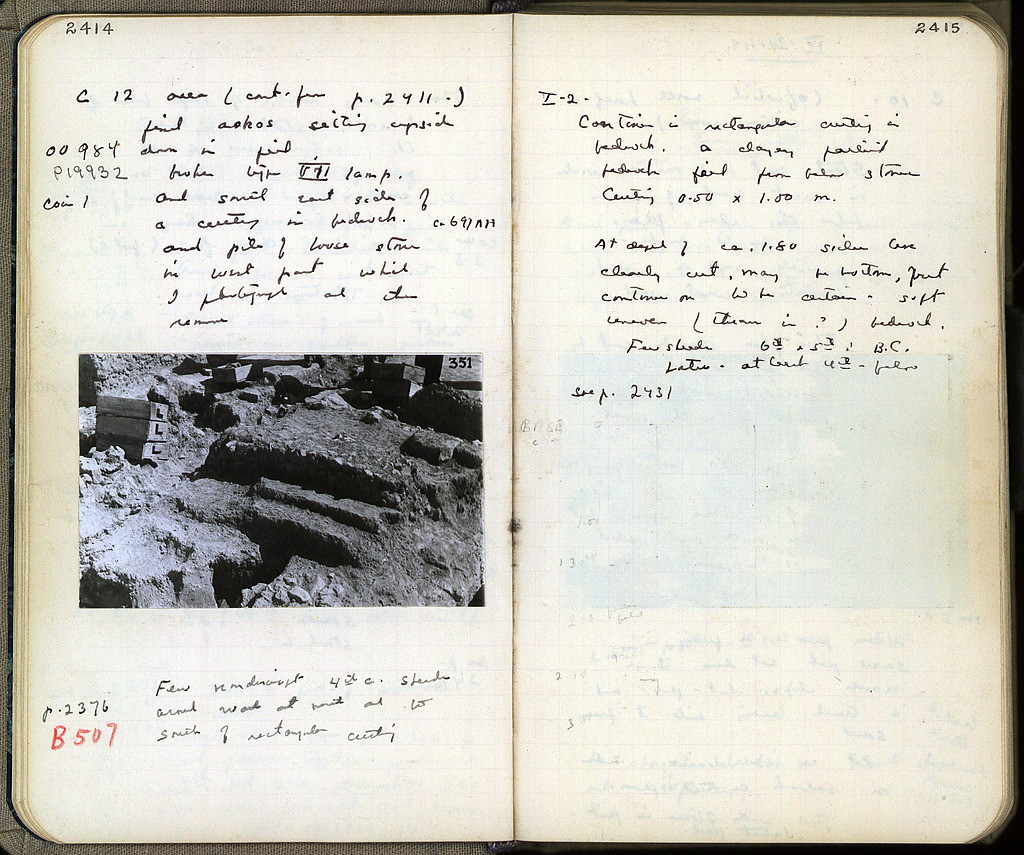 2414
C 12 area (cont. from p. 2411.)
find askos sitting upside
00 984 down in fill
P19932 broken type VII lamp.
coin 1 and small east side of
a cutting in bedrock.
and pile of loose stone
in west part which
I photograph and then
remove
351
L
L
L
Few nondescript 4th c. sherds
p. 2376 around north and to
B 507 south of rectangular cutting
2415
I-2.
Continue in rectangular cutting in
bedrock. a clayey
bedrock fill from below stones
Cutting 0.50 x 1.00 m.
At depth of ca. 1.80 sides are
clearly cut, may be bottom, but
continue on to be certain - soft
uneven (thrown in?) bedrock.
Few sherds 6th & 5th c. B.C.
Later - at least 4th - below
see p. 2431
1.00
2
3